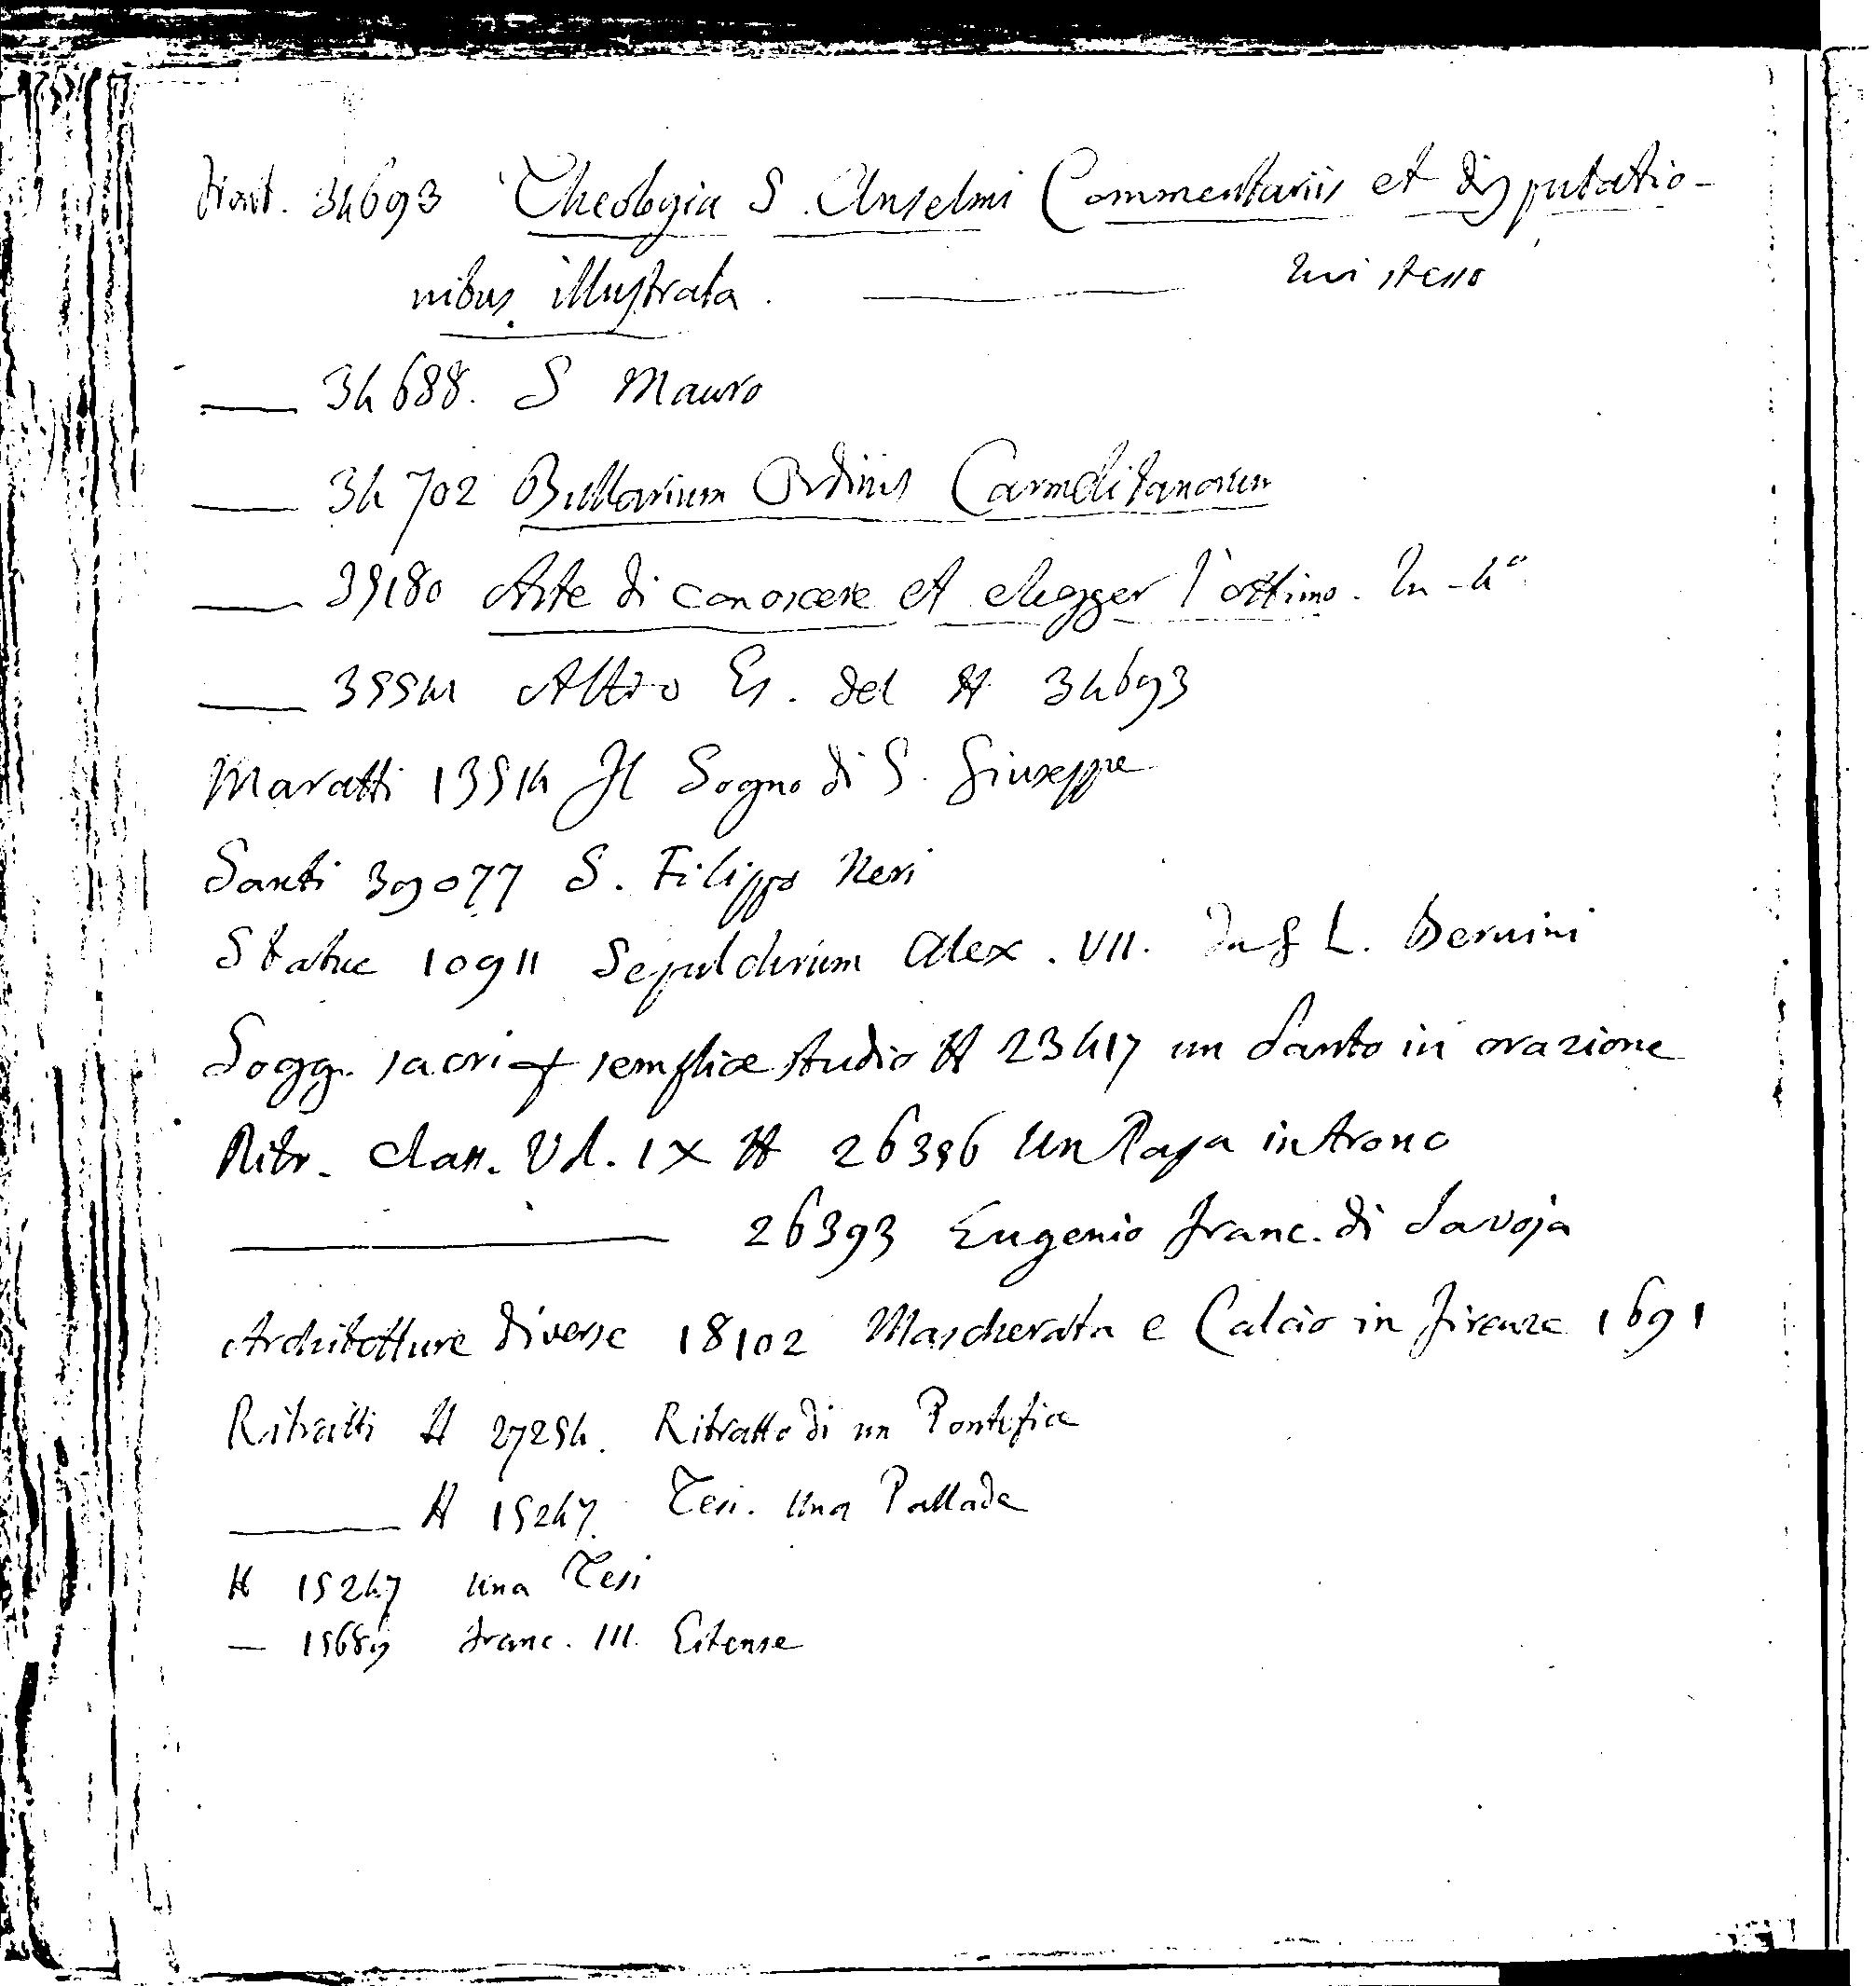 Front. 34693 Theologia S. Anselmi Commentariis et disputatio-
nibus illustrata. ——— Lui stesso
—— 34688. S Mauro
—— 34702 Bullarium Ordinis Carmelitanorum
—— 39180 Arte di conoscere et elegger l'ottimo. In-4°
—— 35541 Altro Es. del N 34693
Maratti 13514 Il Sogno di S. Giuseppe
Santi 39077 S. Filippo Neri
Statue 10911 Sepulchrum Alex. VII. L. Bernini
Sogg. sacri semplice studio N 23417 un Santo in orazione
Ritr. class. Vol. IX N 26396 Un Papa in trono
——— 26393 Eugenio Franc. di Savoja
Architetture diverse 18102 Mascherata e Calcio in Firenze 1691
Ritratti N 27254. Ritratto di un Pontefice
——— N 15247. Tesi. Una Pallade
N 15247 Una Tesi
— 15689 Franc. III. Estense